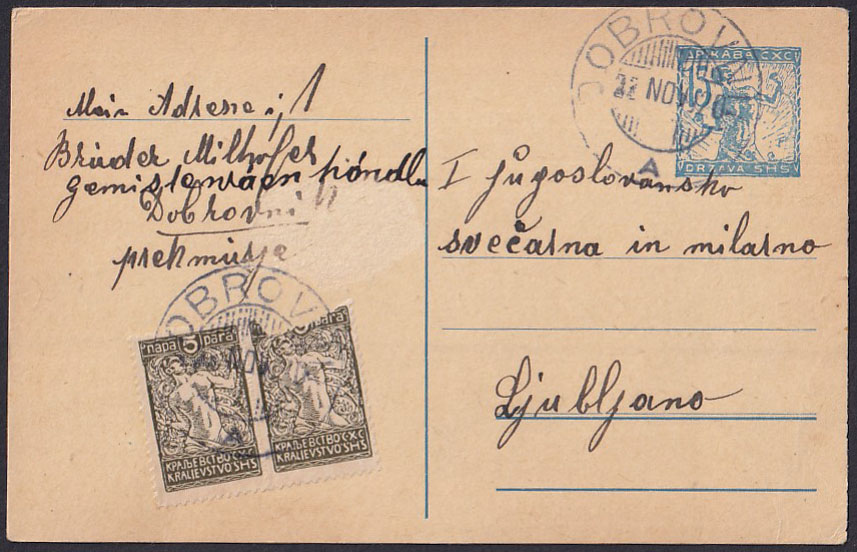 Mein Adresse i, 1
Brüder Milhofer
Dobrovnik
prekmurje
DOBROV
NOV
5
пара para
КРАЉЕВСТВО СХС
KRALJEVSTVO SHS
пара para
КРАЉЕВСТВО СХС
KRALJEVSTVO SHS
DOBROV
22 NOV 20
A
ДРЖАВА СХС
DRŽAVA SHS
I jugoslovansko
svečarna in milarno
Ljubljano